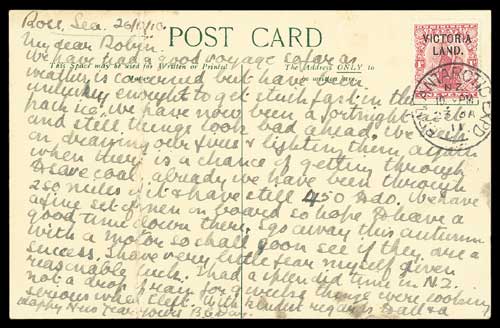 Ross Sea. 26/12/10.
POST CARD
This Space may be used for Written or Printed
The Address ONLY to
be written here.
My dear Robyn.
We have had a good voyage so far as
weather is concerned but have been
unlucky enought to get stuck fast in the
pack ice, we have now been a fortnight
and still things look bad ahead. We keep
on drawing our fires & lighting them again
when there is a chance of getting through
to save coal, already we have been through
250 miles of it & have still 450 to do. We have
a fine set of men on board so hope to have a
good time down there. I go away this autumn
with a motor so shall soon see if they are a
success, I have very little fear myself given
reasonable luck. I had a splendid time in N.Z.
not a drop of rain for 4 weeks things were looking
serious when I left. With kindest regards to all & a
Happy New Year. Yours B. C. Day.
VICTORIA
LAND.
ANTARCTIC EXPD
N.Z.
11